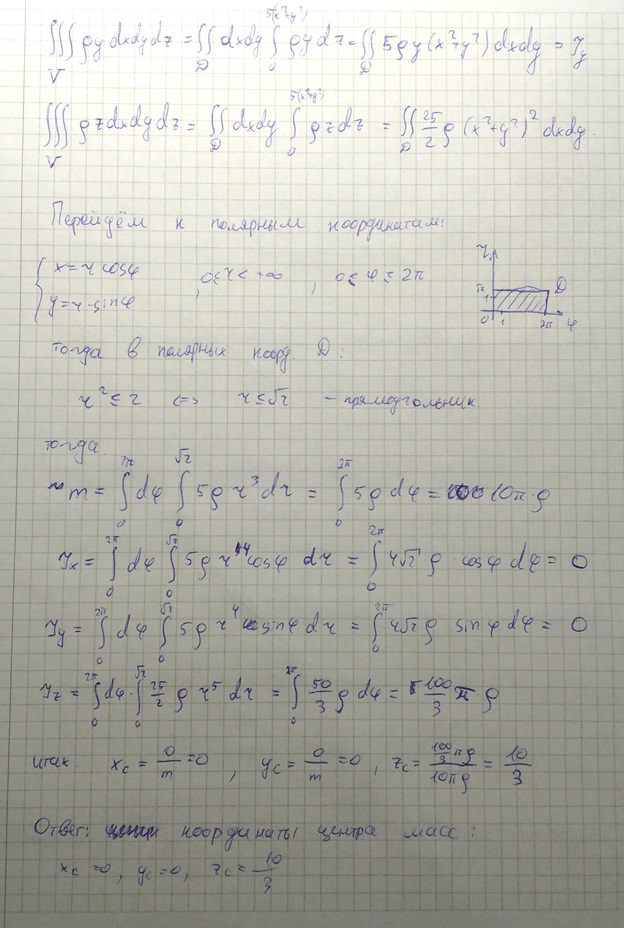 ∭_V ρy dxdydz = ∬_D dxdy ∫_0^{5(x²+y²)} ρy dz = ∬_D 5ρy(x²+y²) dxdy = J_y
∭_V ρz dxdydz = ∬_D dxdy ∫_0^{5(x²+y²)} ρz dz = ∬_D 25/2 ρ (x²+y²)² dxdy.
Перейдём к полярным координатам:
{ x = r cosφ
y = r·sinφ , 0≤r<+∞ , 0≤φ≤2π
r √2 1 0 1 2π φ D
тогда в полярных коорд. D:
r² ≤ 2 <=> r ≤ √2 – прямоугольник.
тогда
m = ∫_0^{2π} dφ ∫_0^{√2} 5ρ r³ dr = ∫_0^{2π} 5ρ dφ = 10π·ρ
J_x = ∫_0^{2π} dφ ∫_0^{√2} 5ρ r⁴ cosφ dr = ∫_0^{2π} 4√2 ρ cosφ dφ = 0
J_y = ∫_0^{2π} dφ ∫_0^{√2} 5ρ r⁴ sinφ dr = ∫_0^{2π} 4√2 ρ sinφ dφ = 0
J_z = ∫_0^{2π} dφ · ∫_0^{√2} 25/2 ρ r⁵ dr = ∫_0^{2π} 50/3 ρ dφ = 100/3 π ρ
итак x_c = 0/m = 0 , y_c = 0/m = 0 , z_c = (100/3 πρ)/(10πρ) = 10/3
Ответ: координаты центра масс:
x_c = 0, y_c = 0, z_c = 10/3